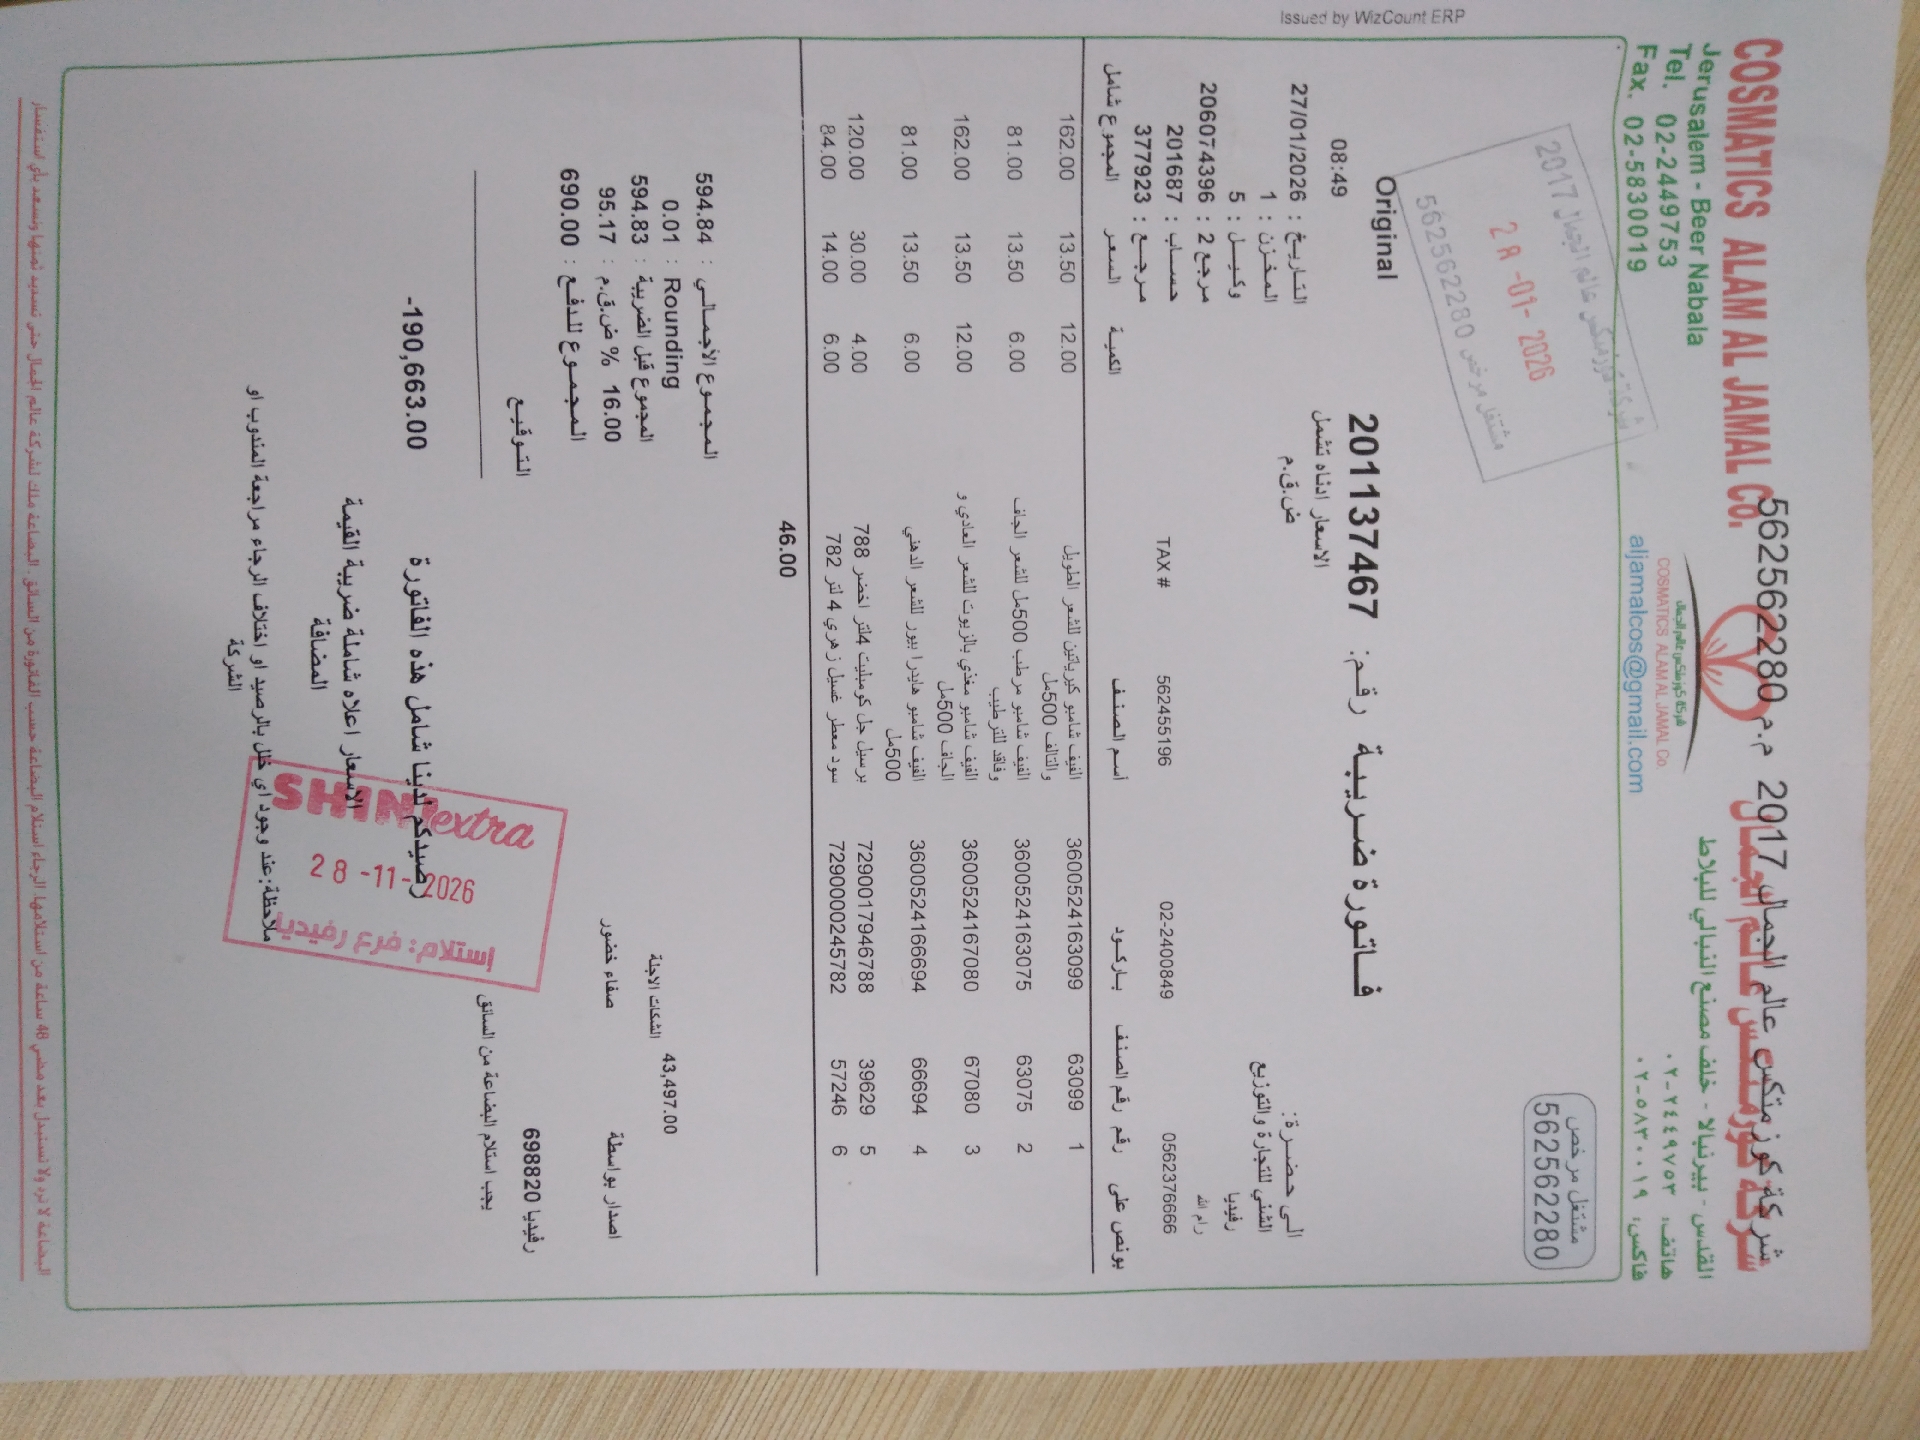 Issued by WizCount ERP
شركة كوزمتكس عالم الجمال 2017 م.م 562562280
COSMATICS ALAM AL JAMAL CO.
شركة كوزمتكس عالم الجمال
Jerusalem - Beer Nabala
القدس - بيرنبالا - خلف مصنع النبالي للبلاط
Tel. 02-2449753
هاتف: ٠٢-٢٤٤٩٧٥٣
Fax. 02-5830019
فاكس: ٠٢-٥٨٣٠٠١٩
شركة كوزمتكس عالم الجمال
COSMATICS ALAM AL JAMAL Co.
aljamalcos@gmail.com
مشتغل مرخص
562562280
شركة كوزمتكس عالم الجمال 2017
28-01-2026
مشتغل مرخص 562562280
Original
فاتورة ضريبية رقم: 201137467
08:49
الاسعار ادناه تشمل
ض.ق.م
التاريخ : 27/01/2026
المخزن : 1
وكيل : 5
مرجع 2 : 206074396
حساب : 201687
مرجع : 377923
الى حضرة:
الشني للتجارة والتوزيع
رفيديا
رام الله
0562376666 02-2400849 562455196 TAX #
بونص على رقم رقم الصنف باركود اسم الصنف الكمية السعر المجموع شامل
1 63099 3600524163099 الفيف شامبو كيرياتين للشعر الطويل 12.00 13.50 162.00
والتالف 500مل
2 63075 3600524163075 الفيف شامبو مرطب 500مل للشعر الجاف 6.00 13.50 81.00
وفاقد للترطيب
3 67080 3600524167080 الفيف شامبو مغذي بالزيوت للشعر العادي و 12.00 13.50 162.00
الجاف 500مل
4 66694 3600524166694 الفيف شامبو هايدرا بيور للشعر الدهني 6.00 13.50 81.00
500مل
5 39629 7290017946788 برسيل جل كومبليت 4لتر اخضر 788 4.00 30.00 120.00
6 57246 7290000245782 سود معطر غسيل زهري 4 لتر 782 6.00 14.00 84.00
46.00
المجموع الأجمالي : 594.84
Rounding : 0.01
المجموع قبل الضريبة : 594.83
ض.ق.م % 16.00 : 95.17
المجموع للدفع : 690.00
43,497.00 الشكات الاجلة
اصدار بواسطة صفاء خضور
رفيديا 698820
التوقيع
يجب استلام البضاعة من السائق
رصيدكم لدينا شامل هذه الفاتورة -190,663.00
الاسعار اعلاه شاملة ضريبة القيمة
المضافة
ملاحظة:عند وجود اي خلل بالرصيد او اختلاف الرجاء مراجعة المندوب او
الشركة
SHINI extra
28-11-2026
إستلام: فرع رفيديا
البضاعة لا ترد ولا تستبدل بعد مضي 48 ساعة من استلامها. الرجاء استلام البضاعة حسب الفاتورة من السائق. البضاعة ملك لشركة عالم الجمال حتى تسديد ثمنها ونسعد بأي استفسار